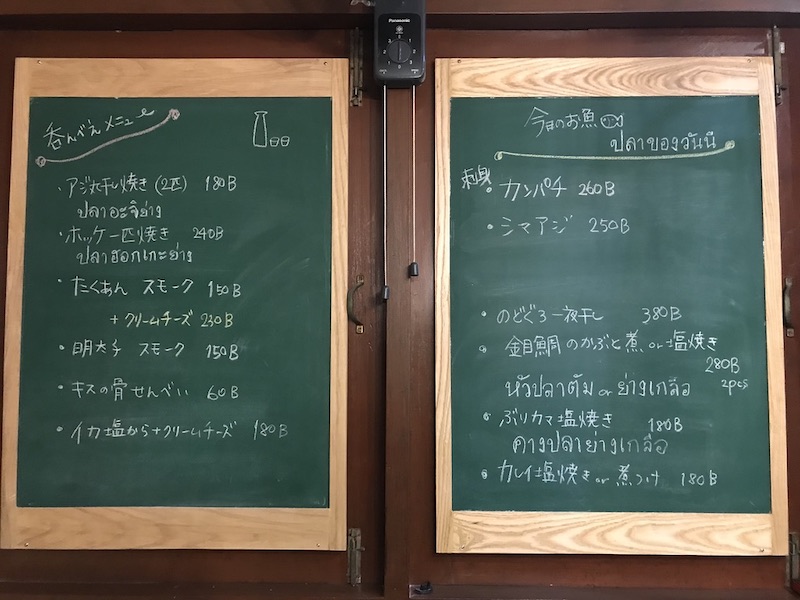 Panasonic
呑んべえメニュー
・アジ丸干し焼き(2匹) 180B
ปลาอะจิย่าง
・ホッケ一匹焼き 240B
ปลาฮอกเกะย่าง
・たくあん スモーク 150B
+クリームチーズ 230B
・明太子 スモーク 150B
・キスの骨せんべい 60B
・イカ塩から+クリームチーズ 180B
今日のお魚
ปลาของวันนี้
刺身
・カンパチ 260B
・シマアジ 250B
・のどぐろ一夜干し 380B
・金目鯛のかぶと煮or塩焼き
280B
หัวปลาต้ม or ย่างเกลือ 2pcs
・ぶりカマ塩焼き 180B
คางปลาย่างเกลือ
・カレイ塩焼きor煮つけ 180B